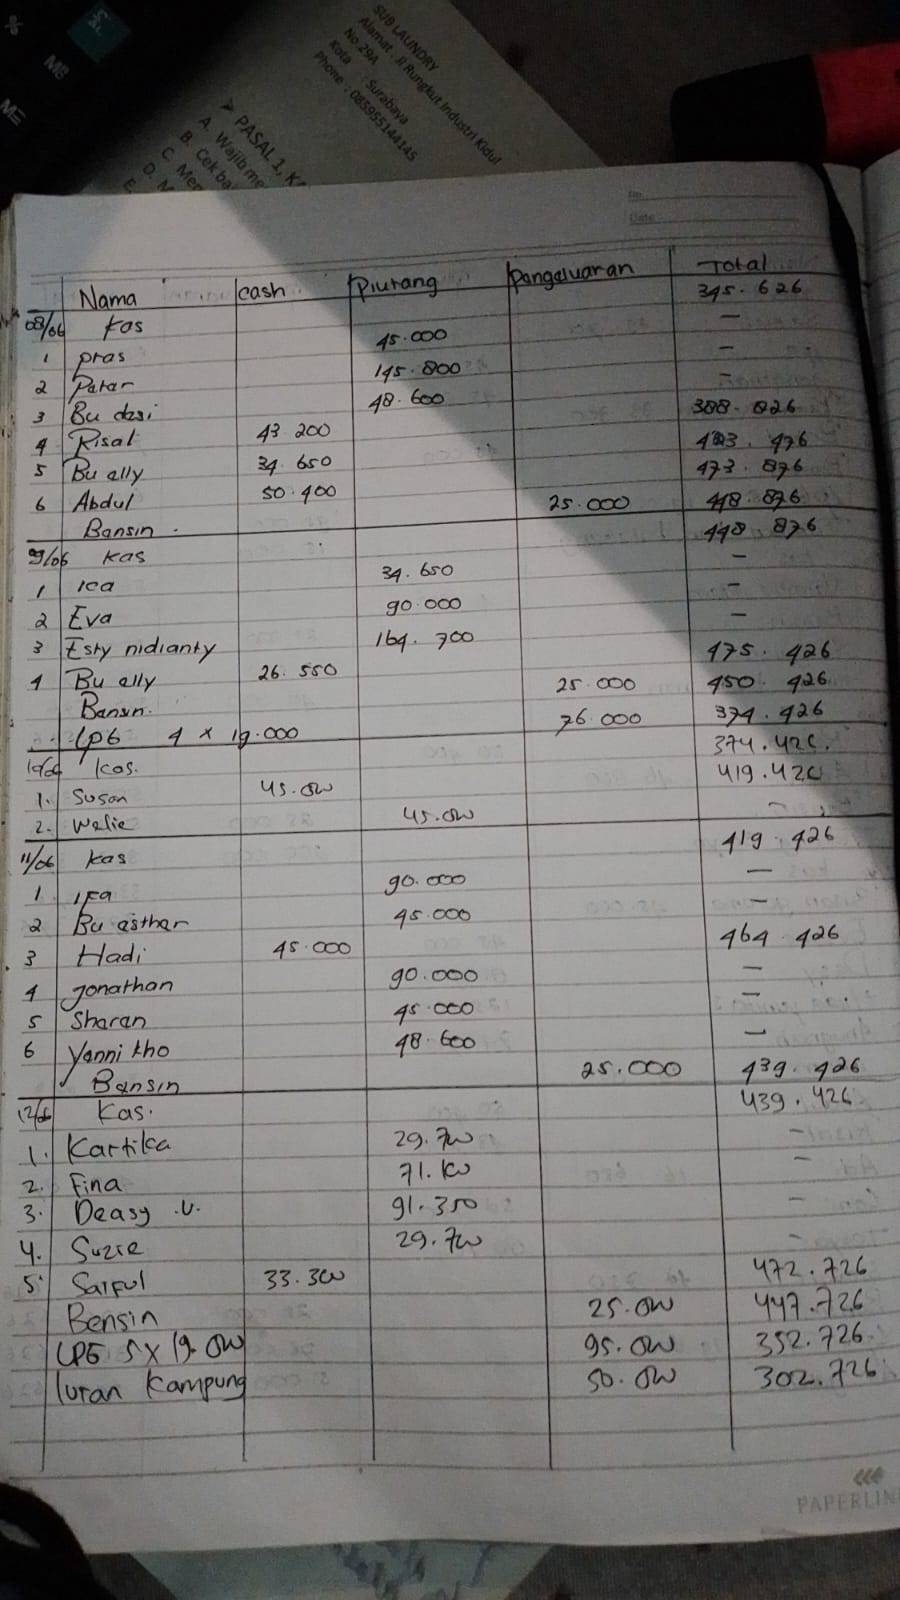 %
M8
ME
SUB LAUNDRY
Alamat : Jl Rungkut Industri Kidul
No 29A
Kota : Surabaya
Phone : 085955144145
➤ PASAL 1, K
A. Wajib me
B. Cek ba
C. Me
D. M
E.
No
Date
Nama cash piutang pengeluaran Total
08/06 kas 345.626
1 pras 45.000 —
2 Patar 145.800 —
3 Bu desi 48.600 —
4 Risal 43 200 388.826
5 Bu elly 34.650 423.476
6 Abdul 50.400 473.876
Bansin. 25.000 448.876
9/06 kas 448.876
1 Ica 34.650 —
2 Eva 90.000 —
3 Esty nidianty 164.700 —
4 Bu elly 26.550 475.426
Bansin. 25.000 450.426
LPG 4 x 19.000 76.000 374.426
10/06 kas. 374.426.
1. Susan 45.000 419.426
2. Welie 45.000 -
11/06 kas 419.426
1 IFa 90.000 —
2 Bu esthar 45.000 —
3 Hadi 45.000 464.426
4 Jonathan 90.000 —
5 Sharan 45.000 —
6 Yanni kho 48.600 —
Bansin 25.000 439.426
12/06 Kas. 439.426
1. Kartika 29.700 -
2. Fina 71.100 -
3. Deasy .U. 91.350 -
4. Suzie 29.700 -
5. Saiful 33.300 472.726
Bensin 25.000 447.726
LPG 5 X 19.000 95.000 352.726
Iuran Kampung 50.000 302.726
PAPERLIN